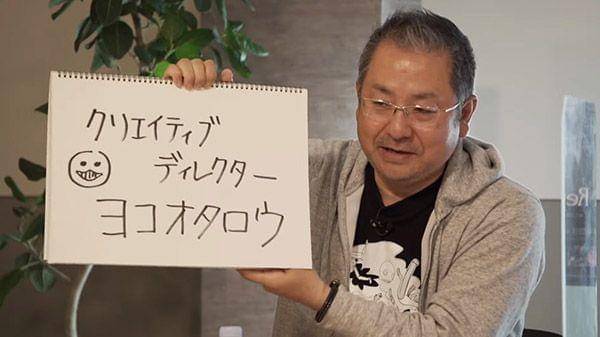 クリエイティブ
ディレクター
ヨコオタロウ
Re